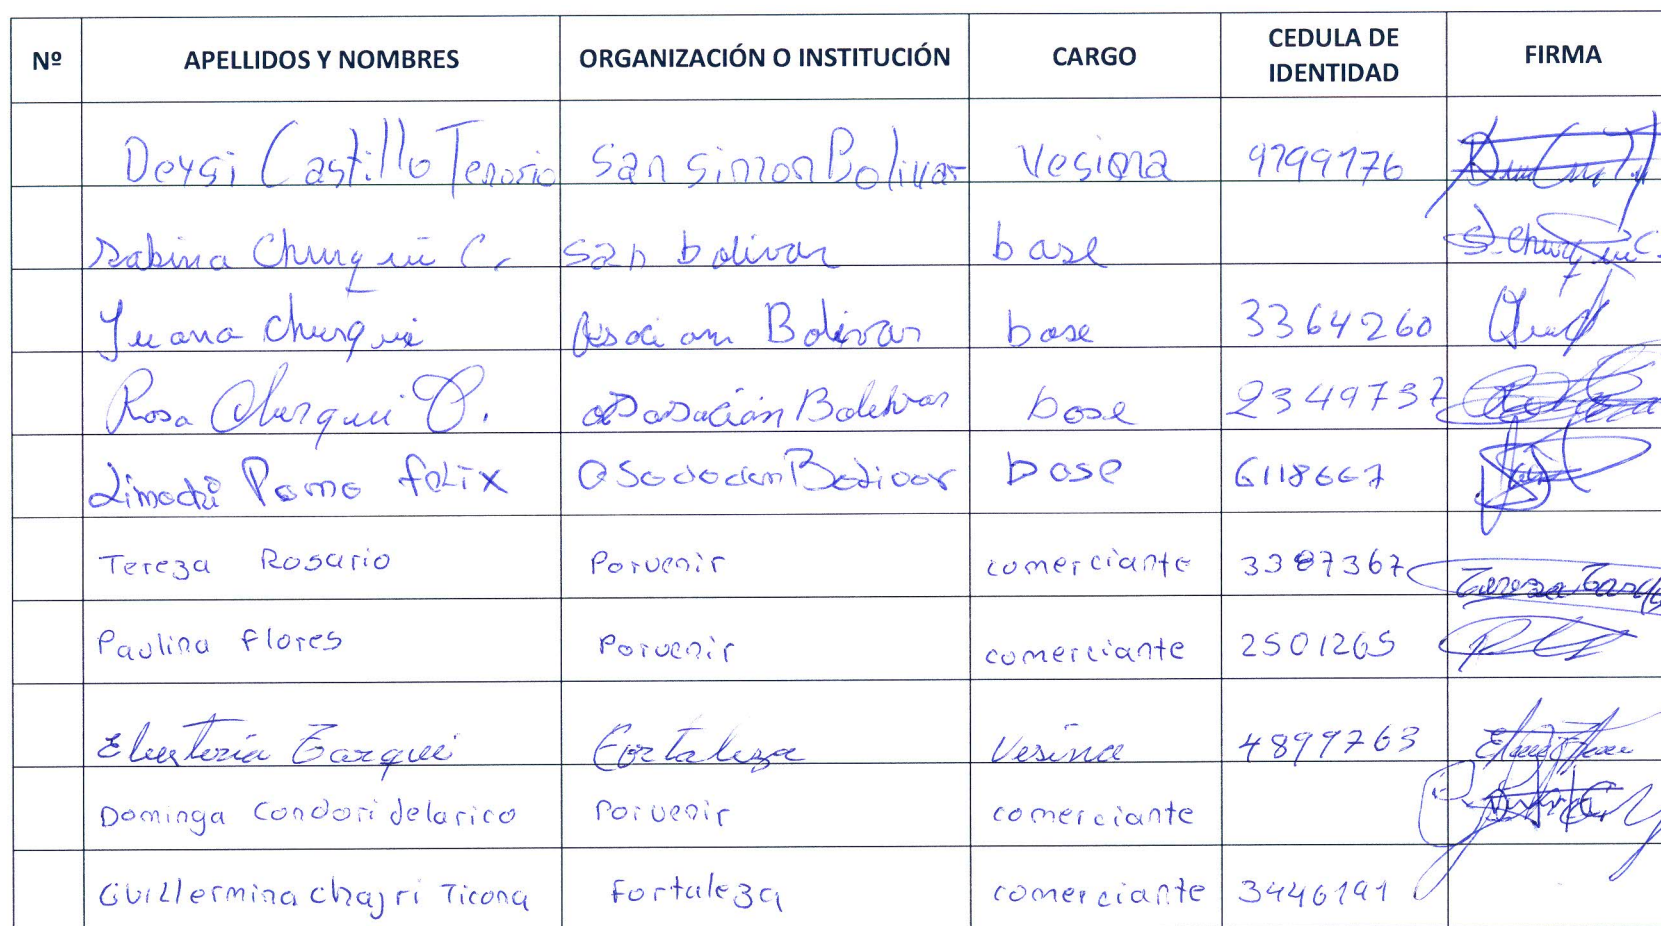 Nº APELLIDOS Y NOMBRES ORGANIZACIÓN O INSTITUCIÓN CARGO CEDULA DE IDENTIDAD FIRMA
Deysi Castillo Tenorio San Simon Bolivar Vesiona 9799776
Sabina Churqui C. San bolivar base S. Churqui C.
Juana Churqui Asociam Bolivar base 3364260
Rosa Churqui C. base 2349737
Limachi Pomo felix base 6118667
Tereza Rosario Porvenir comerciante 3387367
Paulina flores Porvenir comerciante 2501265
Eleuteria Tarqui Fortaleza Vesina 4899763
Dominga Condori delarico Porvenir comerciante
Guillermina chajri Ticona fortaleza comerciante 3446191